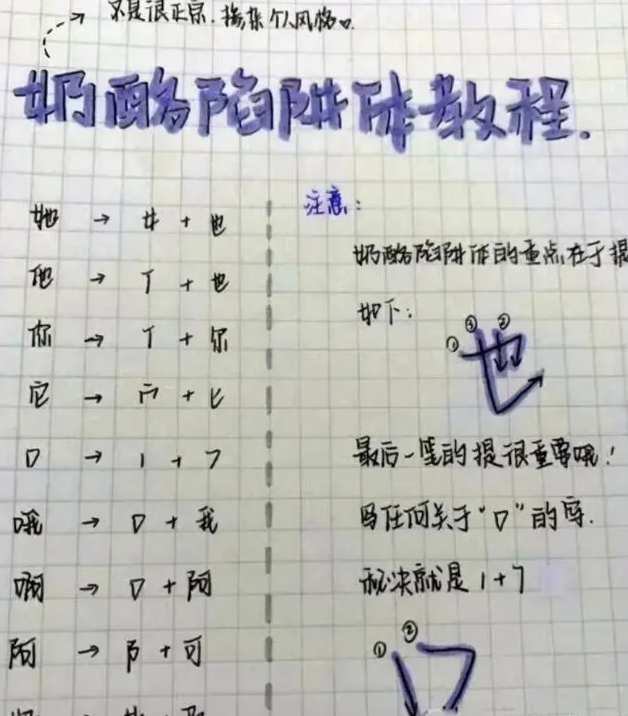 不是很正宗.掺杂个人风格。
奶酪陷阱体教程.
她 → 女 + 也
他 → 亻 + 也
你 → 亻 + 尔
它 → 宀 + 匕
口 → 1 + 7
哦 → 口 + 我
啊 → 口 + 阿
阿 → 阝 + 可
注意:
奶酪陷阱体的重点在于提
如下:
① ③ ②
也
最后一笔的提很重要哦!
写任何关于“口”的字.
秘决就是 1+7
① ②
口